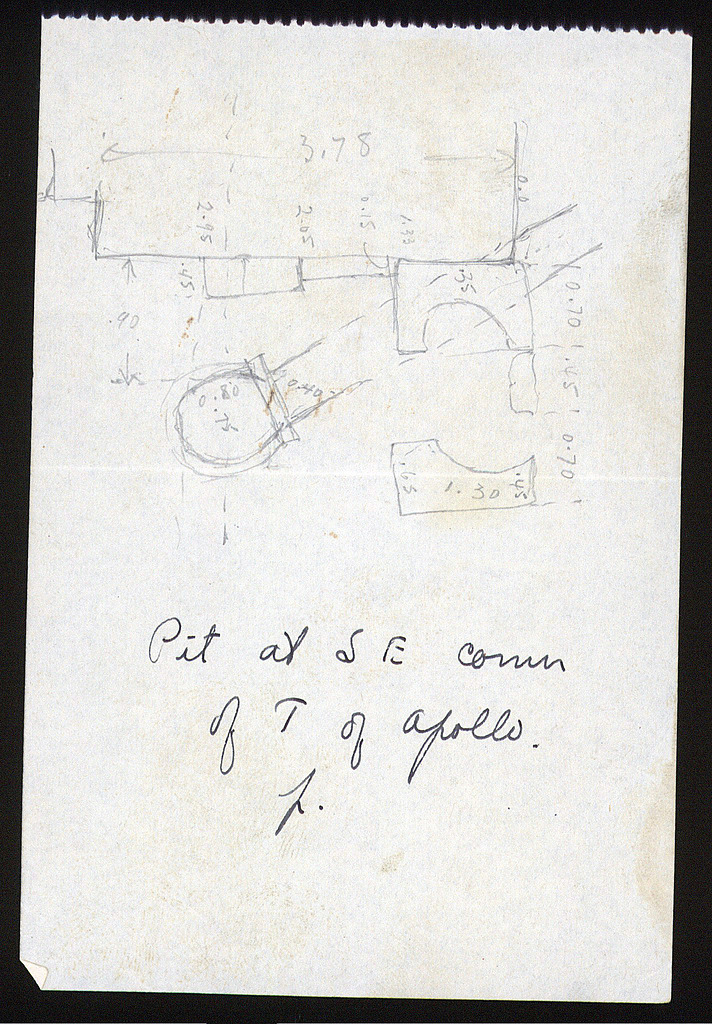 3.78
0.0
2.95
2.05
0.15
1.33
.45
.35
.90
0.40
0.80
.75
0.70
1.45
0.70
.65
1.30
.45
Pit at S E corner
of T of Apollo.